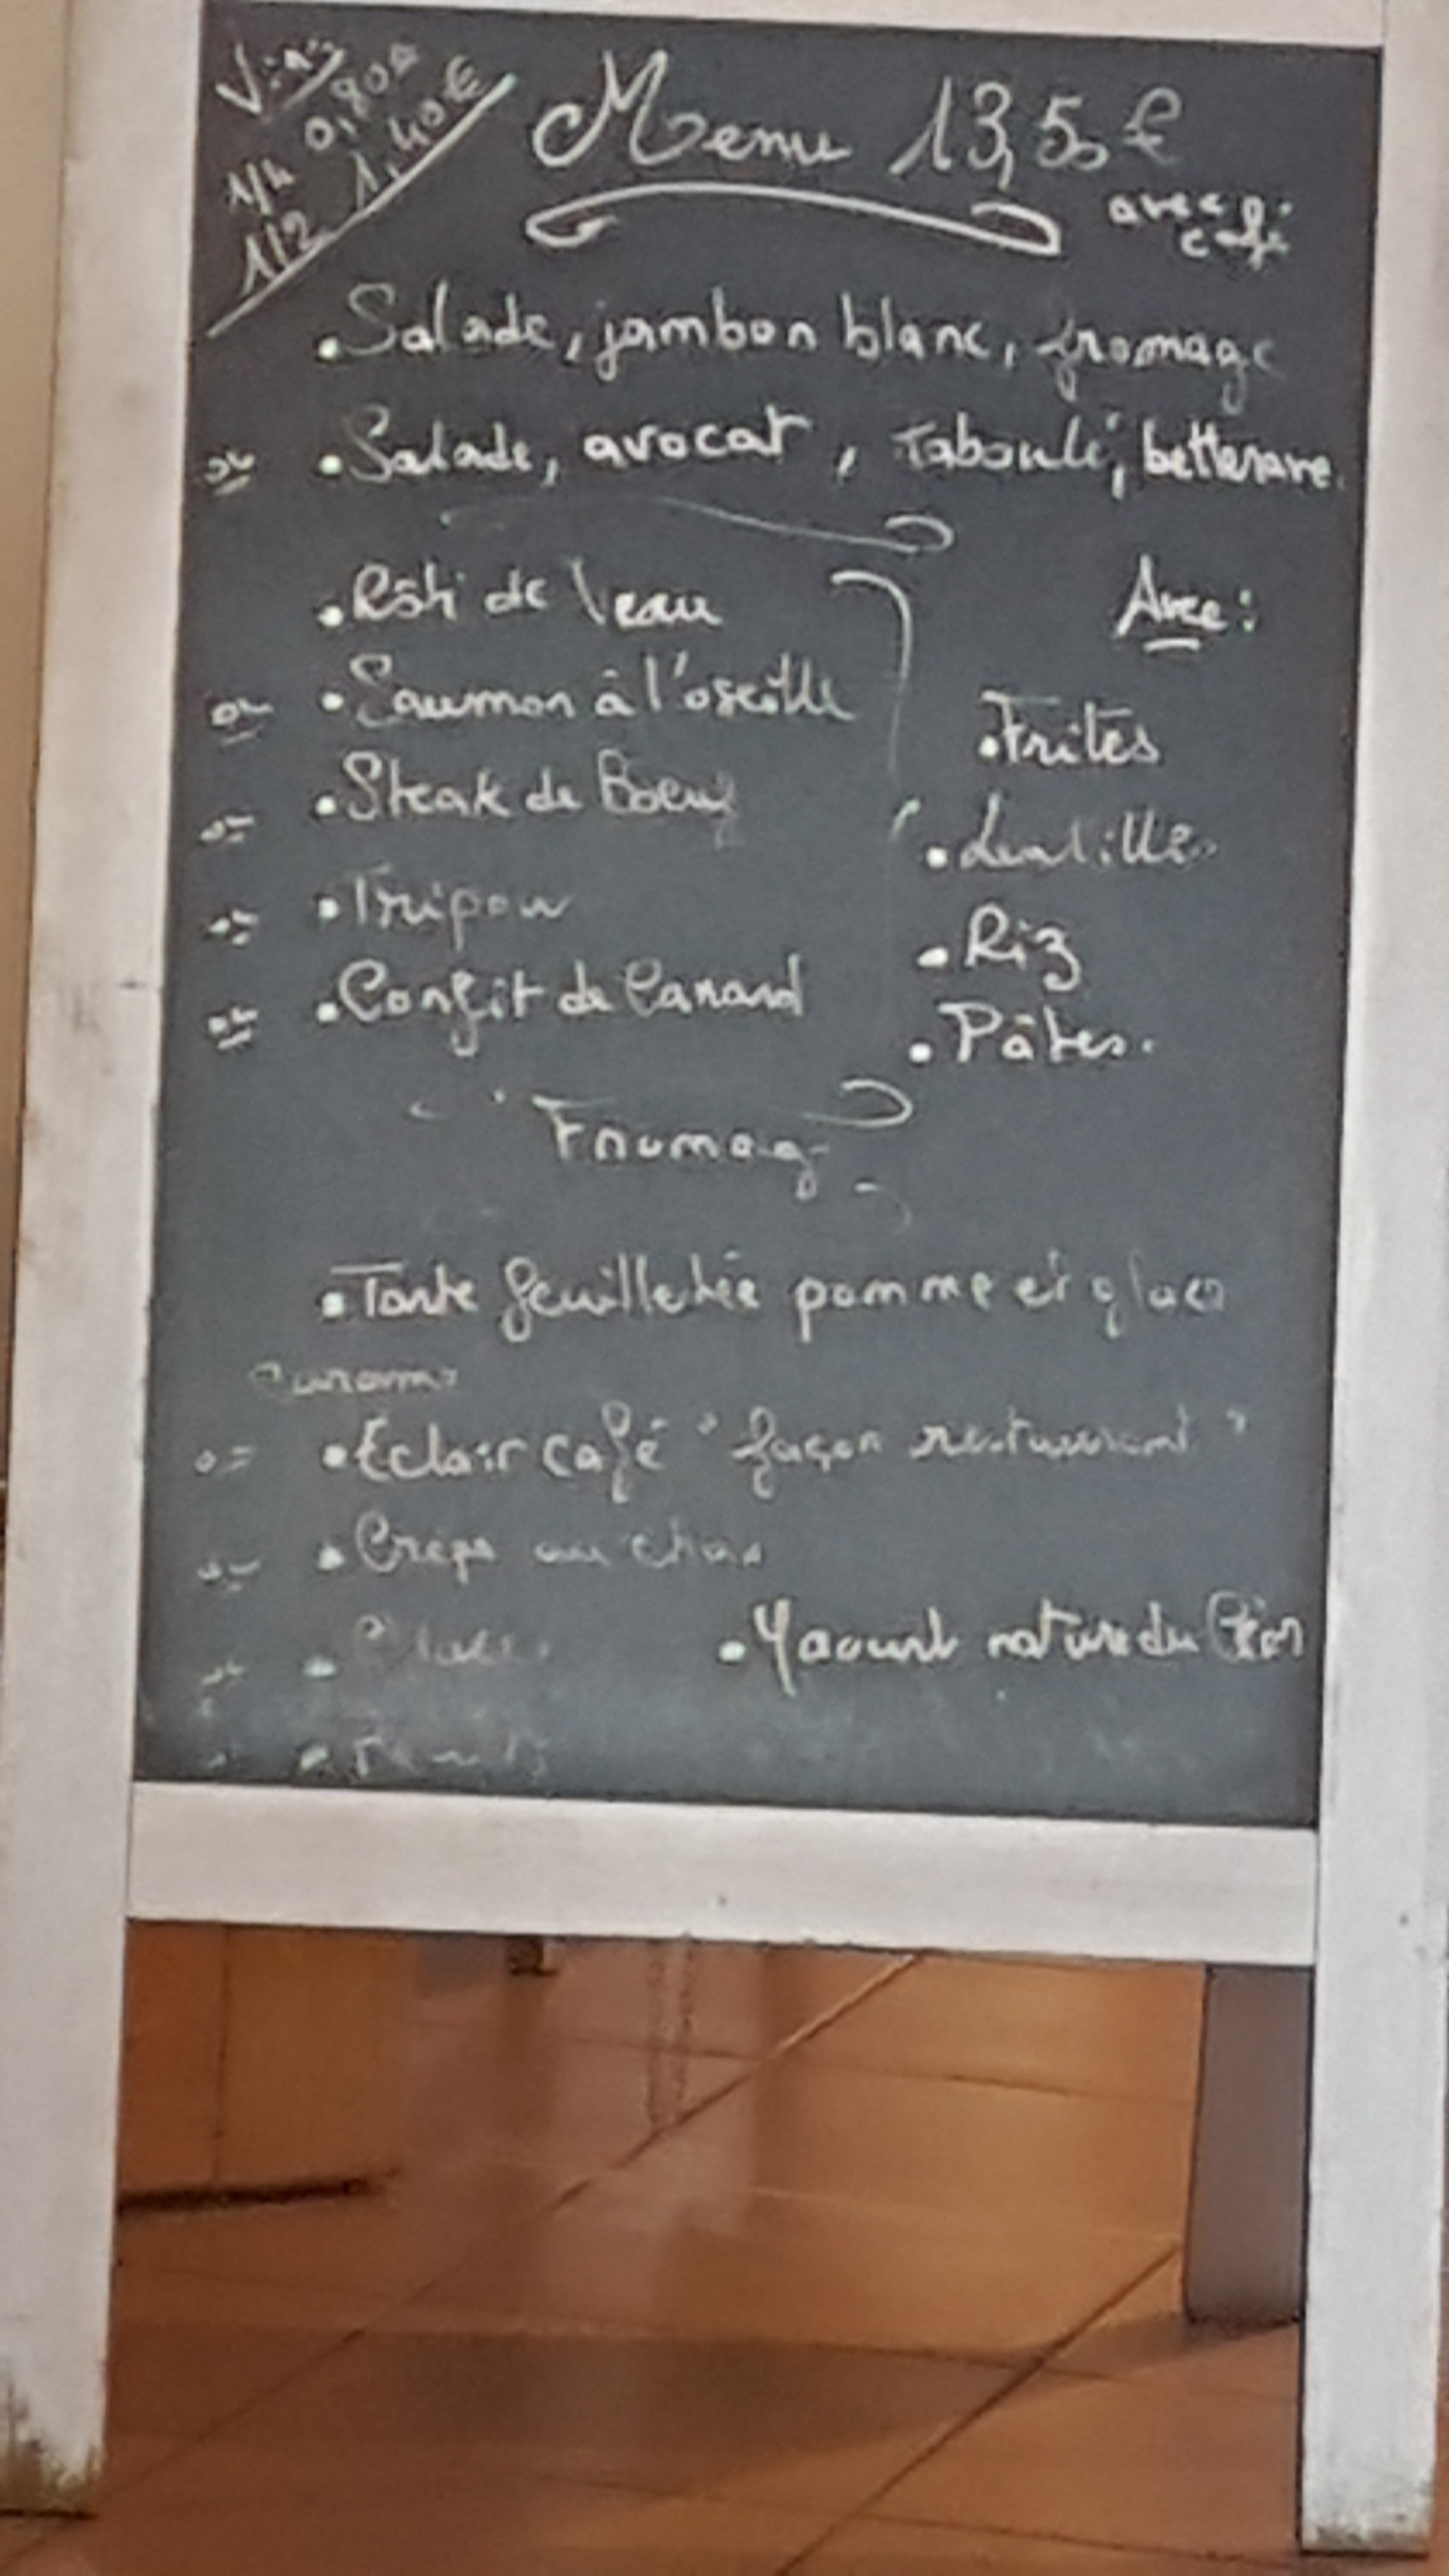 Vins
1/4 0,90€
1/2 1,40€
Menu 13,50€
avec
café
• Salade, jambon blanc, fromage
ou • Salade, avocat, Taboulé, betterave.
• Rôti de Veau
ou • Saumon à l'oseille
ou • Steak de Boeuf
ou • Tripou
ou • Confit de Canard
Avec :
• Frites
• Lentilles
• Riz
• Pâtes.
Fromage
• Tarte feuilletée pomme et glace
ou • Eclair café "façon restaurant"
ou • Crêpe au choix
ou • Glaces
• Yaourt nature du
ou